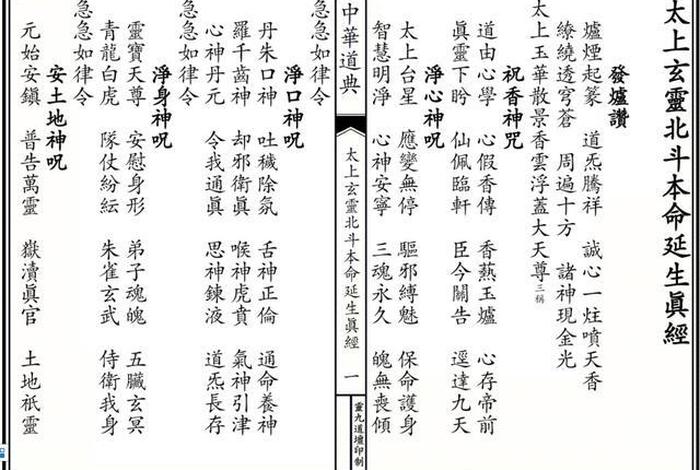 太上玄靈北斗本命延生眞經
發爐讚
爐煙起篆　道炁騰祥　誠心一炷噴天香
繚繞透穹蒼　周遍十方　諸神現金光
太上玉華散景香雲浮蓋大天尊三稱
祝香神咒
道由心學　心假香傳　香爇玉爐　心存帝前
眞靈下盻　仙佩臨軒　臣今關告　逕達九天
淨心神呪
太上台星　應變無停　驅邪縛魅　保命護身
智慧明淨　心神安寧　三魂永久　魄無喪傾
急急如律令
中華道典
太上玄靈北斗本命延生眞經
一
靈九道壇印制
淨口神呪
丹朱口神　吐穢除氛　舌神正倫　通命養神
羅千齒神　却邪衛眞　喉神虎賁　氣神引津
心神丹元　令我通眞　思神鍊液　道炁長存
急急如律令
淨身神呪
靈寶天尊　安慰身形　弟子魂魄　五臟玄冥
青龍白虎　隊仗紛紜　朱雀玄武　侍衛我身
急急如律令
安土地神呪
元始安鎭　普告萬靈　嶽瀆眞官　土地祇靈